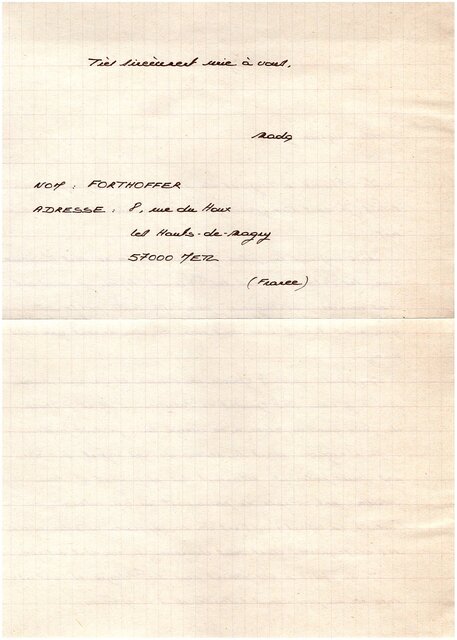 Très sincèrement unie à vous.
Mado
NOM : FORTHOFFER
ADRESSE : 8, rue du Houx
Les Hauts-de-Magny
57000 METZ
(France)